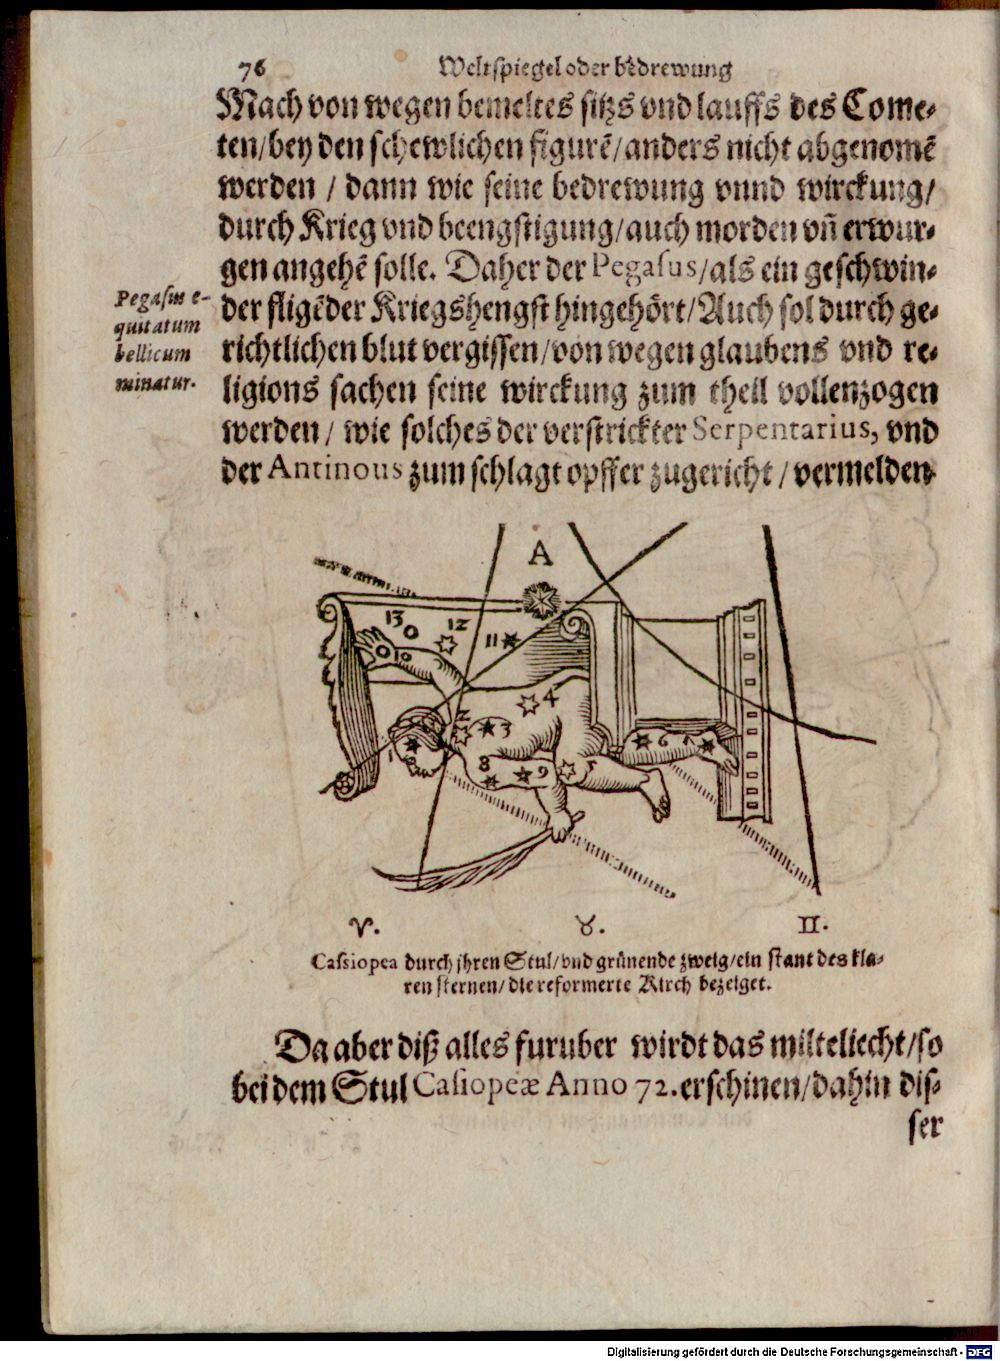 76
Weltspiegel oder bedrewung
Mach von wegen bemeltes sitzs vnd lauffs des Come-
ten/bey den schewlichen figurē/anders nicht abgenomē
werden / dann wie seine bedrewung vnnd wirckung/
durch Krieg vnd beengstigung/auch morden vñ erwur-
gen angehē solle. Daher der Pegasus/als ein geschwin-
der fligēder Kriegshengst hingehört/Auch sol durch ge-
richtlichen blut vergissen/von wegen glaubens vnd re-
ligions sachen seine wirckung zum theil vollenzogen
werden/ wie solches der verstrickter Serpentarius, vnd
der Antinous zum schlagt opffer zugericht / vermelden.
Pegasus e-
quitatum
bellicum
minatur.
A
13
12
11
10
4
2
3
1
8
9
5
6
7
♈.
♉.
♊.
Cassiopea durch jhren Stul/vnd grünende zweig/ein stant des kla-
ren sternen/die reformerte Kirch bezeiget.
Da aber diß alles furuber wirdt das milteliecht/so
bei dem Stul Casiopeæ Anno 72. erschinen/dahin dis-
ser
Digitalisierung gefördert durch die Deutsche Forschungsgemeinschaft - DFG